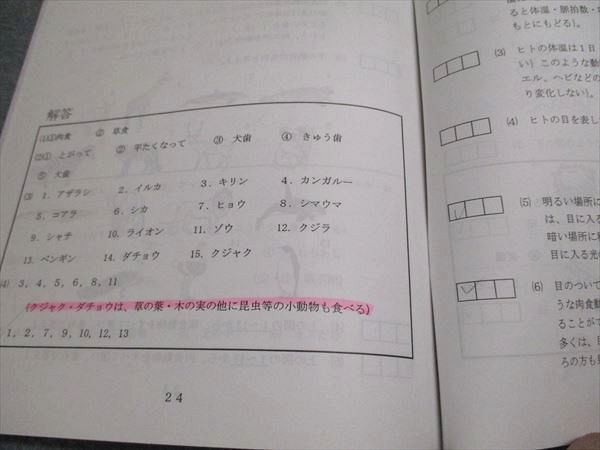 解答
(1)①肉食 ② 草食
(2)① とがって ② 平たくなって ③ 犬歯 ④ きゅう歯
⑤ 犬歯
(3) 1. アザラシ 2. イルカ 3. キリン 4. カンガルー
5. コアラ 6. シカ 7. ヒョウ 8. シマウマ
9. シャチ 10. ライオン 11. ゾウ 12. クジラ
13. ペンギン 14. ダチョウ 15. クジャク
(4) 3, 4, 5, 6, 8, 11
(クジャク・ダチョウは、草の葉・木の実の他に昆虫等の小動物も食べる)
1, 2, 7, 9, 10, 12, 13
24
ると体温・脈拍数・
もとにもどる)。
(3) ヒトの体温は1日
い) このような動
エル、ヘビなどの
り変化しない)。
(4) ヒトの目を表し
(5) 明るい場所に
は、目に入る
暗い場所に
目に入る光
(6) 目のついて
うな肉食動
ることがで
多くは、
ろの方も